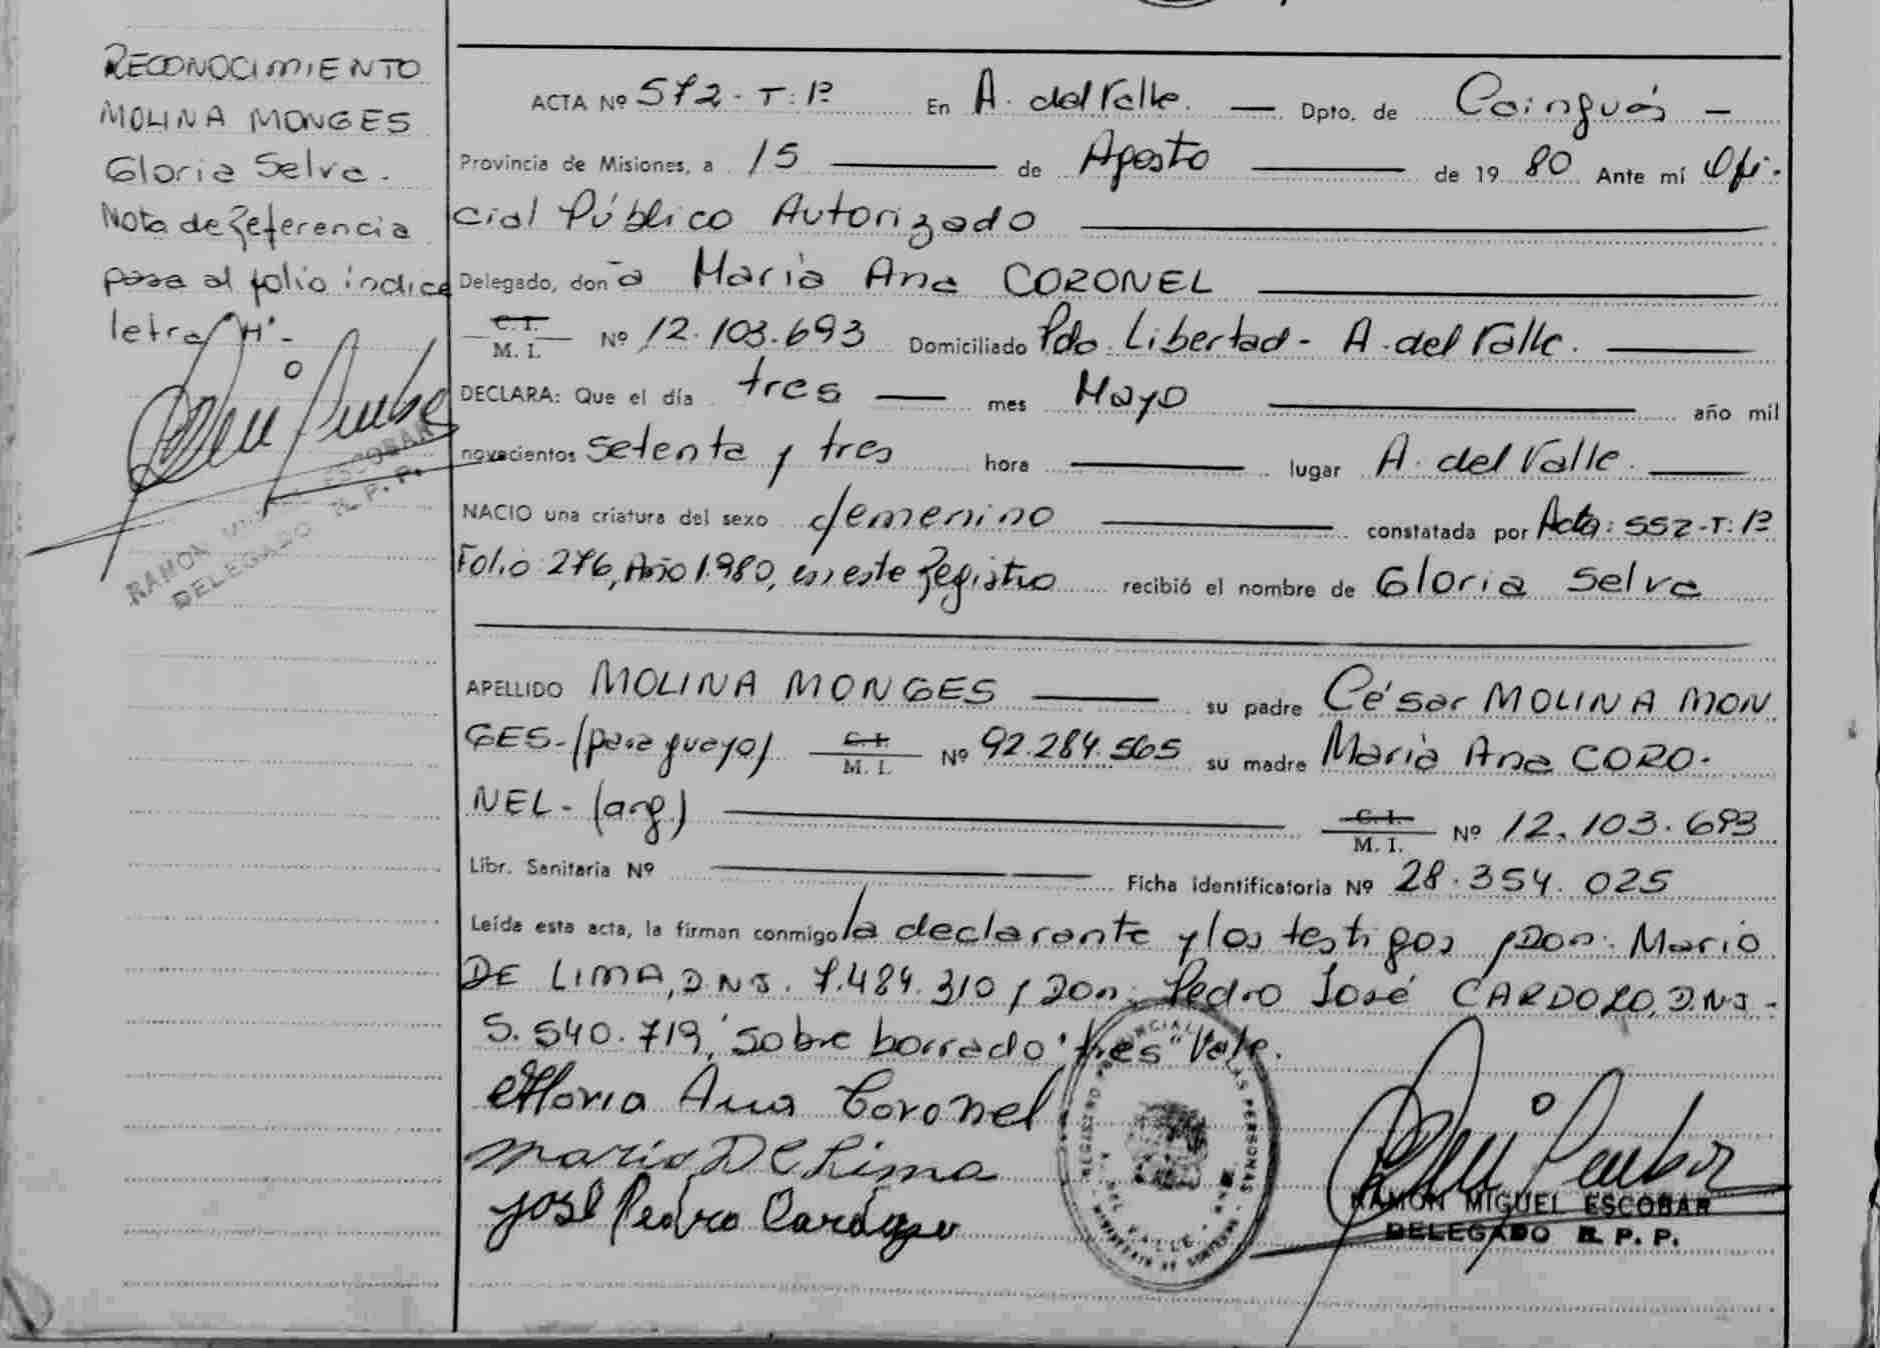 RECONOCIMIENTO
MOLINA MONGES
Gloria Selva.
Nota de Referencia
pasa al folio índice
letra "M"-
RAMON MIGUEL ESCOBAR
DELEGADO R. P. P.
ACTA Nº 572-T:1º En A. del Valle. — Dpto. de Cainguás -
Provincia de Misiones, a 15 — de Agosto — de 19 80 Ante mí Ofi-
cial Público Autorizado
Delegado, don ̃a María Ana CORONEL
C. I. / M. I. Nº 12.103.693 Domiciliado Pdo. Libertad - A. del Valle.
DECLARA: Que el día tres — mes Mayo — año mil
novecientos setenta y tres hora — lugar A. del Valle.
NACIO una criatura del sexo femenino — constatada por Acta: 552-T:1º
Folio 276, Año 1.980, en este Registro recibió el nombre de Gloria Selva
APELLIDO MOLINA MONGES — su padre César MOLINA MON
GES-(paraguayo) C. I. / M. I. Nº 92.284.565 su madre María Ana CORO-
NEL-(arg.) — C. I. / M. I. Nº 12.103.693
Libr. Sanitaria Nº — Ficha identificatoria Nº 28.354.025
Leída esta acta, la firman conmigo la declarante y los testigos, Don: Mario
DE LIMA, D.N.I. 7.484.310 y Don: Pedro José CARDOZO, D.N.I-
5.540.719, sobre borrado "tres" Vale.
Maria Ana Coronel
Mario De Lima
José Pedro Cardozo
REGISTRO PROVINCIAL DE LAS PERSONAS
RAMON MIGUEL ESCOBAR
DELEGADO R. P. P.